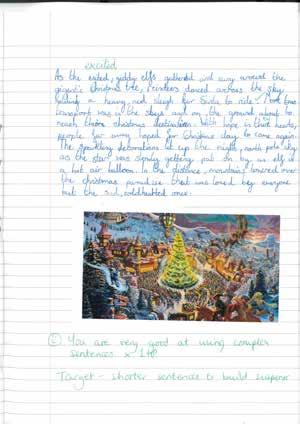 excited
As the exited, giddy elfs gathered and sung around the
gigantic christmas tree, reindeers danced across the sky
pulling a heavy, red sleigh for Santa to ride.
transport was in the skeys and on the ground about to
reach there christmas destinations. With hope in their hearts,
people far away hoped for Christmas day to come again.
The sparkling decorations lit up the night, north pole sky
as the star was signaly getting put on by an elf in
a hot air balloon. In the distance, mountains towered over
the christmas paradise that was loved by everyone
but the sad, coldhearted ones.
You are very good at using complex
sentences x 1HP
Target - shorter sentences to build suspense